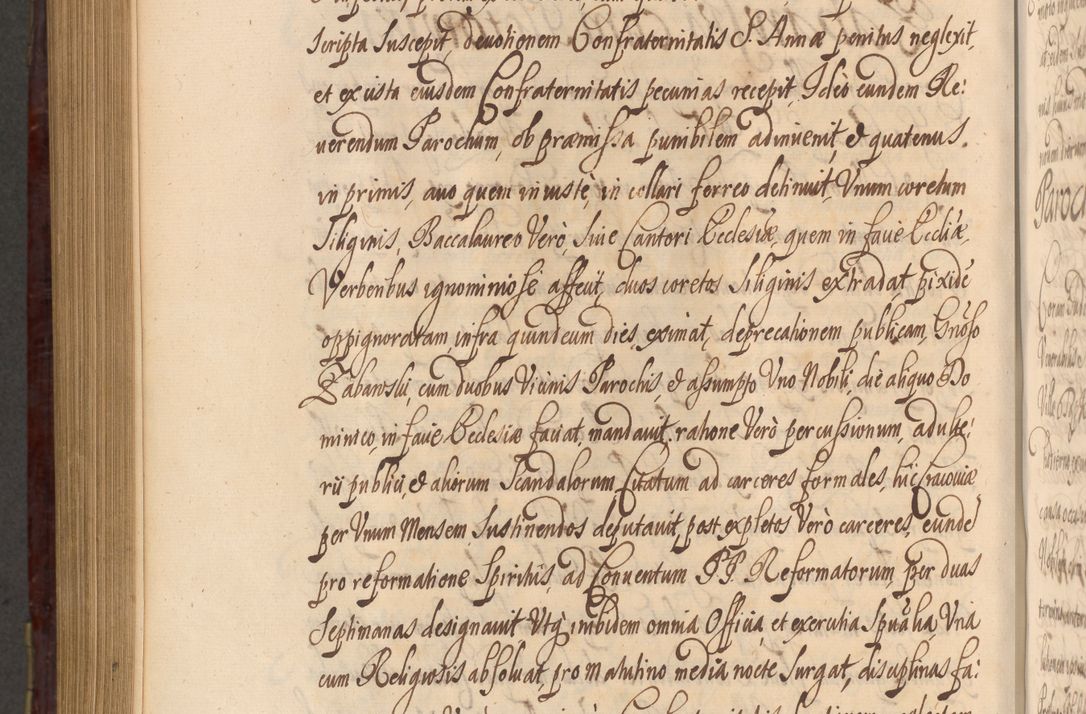 scripta suscepit, devotionem Confraternitatis S. Annæ penitus neglexit,
et ex cista eiusdem Confraternitatis pecunias recepit, Ideo eundem Re:
uerendum Parochum, ob præmissa punibilem adinuenit, & quatenus.
in primis, auo quem iniustè, in collari ferreo detinuit, Vnum coretum
Siliginis, Baccalaureo Verò, siue Cantori Ecclesiæ, quem in facie Eccliæ,
Verberibus ignominiosè affecit, duos coretos Siliginis extradat, pixidẽ
oppignoratam, infra quindecim dies, eximat, deprecationem publicam, Gnoso
Zabawski, cum duobus Vicinis Parochis, & assumpto Vno Nobili, die aliquo Do
minico, in facie Ecclesiæ faciat, mandauit. ratione Verò percussionum, adulte:
rii publici, & aliorum Scandalorum, Citatum ad carceres formales, hic Cracoviæ
per Vnum Mensem, Sustinendos deputauit, post expletos Verò carceres, eundẽ
pro reformatione Spiritus, ad Conuentum PP. Reformatorum, per duas
Septimanas designauit Vtq; inibidem omnia Officia, et exercitia Spualia, Vna
cum Religiosis absoluat, pro matutino media nocte surgat, disciplinas fa: